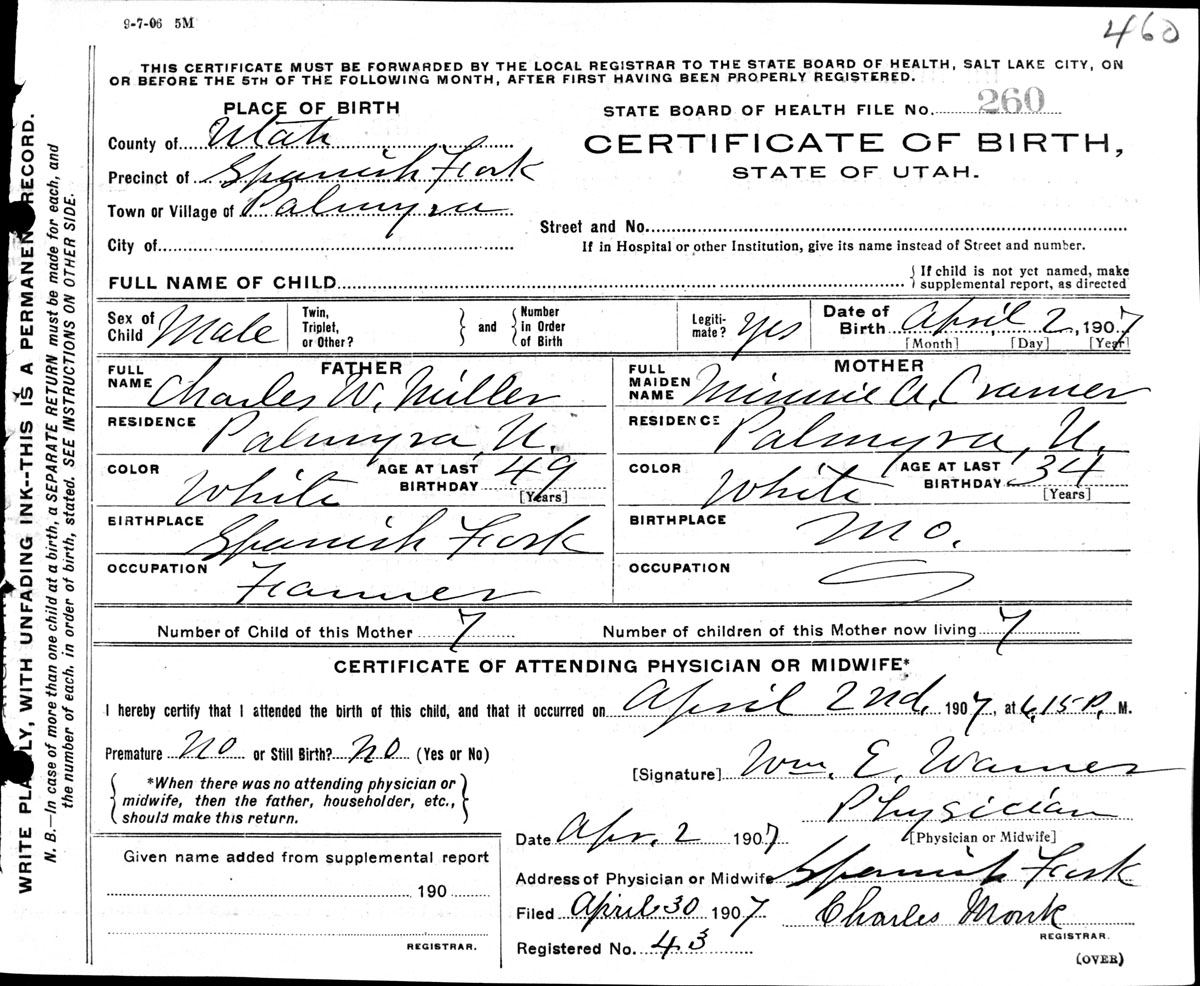 9-7-06 5M
460
THIS CERTIFICATE MUST BE FORWARDED BY THE LOCAL REGISTRAR TO THE STATE BOARD OF HEALTH, SALT LAKE CITY, ON
OR BEFORE THE 5TH OF THE FOLLOWING MONTH, AFTER FIRST HAVING BEEN PROPERLY REGISTERED.
WRITE PLAINLY, WITH UNFADING INK--THIS IS A PERMANENT RECORD.
N. B.—In case of more than one child at a birth, a SEPARATE RETURN must be made for each, and
the number of each, in order of birth, stated. SEE INSTRUCTIONS ON OTHER SIDE.
PLACE OF BIRTH
County of Utah
Precinct of Spanish Fork
Town or Village of Palmyra
City of
STATE BOARD OF HEALTH FILE No. 260
CERTIFICATE OF BIRTH,
STATE OF UTAH.
Street and No.
If in Hospital or other Institution, give its name instead of Street and number.
FULL NAME OF CHILD
If child is not yet named, make
supplemental report, as directed
Sex of Child Male
Twin, Triplet, or Other?
and
Number in Order of Birth
Legiti-mate? Yes
Date of Birth April 2, 1907
[Month] [Day] [Year]
FATHER
FULL NAME Charles W. Miller
RESIDENCE Palmyra, U.
COLOR White AGE AT LAST BIRTHDAY 49
[Years]
BIRTHPLACE Spanish Fork
OCCUPATION Farmer
MOTHER
FULL MAIDEN NAME Minnie A. Cramer
RESIDENCE Palmyra, U.
COLOR White AGE AT LAST BIRTHDAY 34
[Years]
BIRTHPLACE Mo.
OCCUPATION
Number of Child of this Mother 7 Number of children of this Mother now living 7
CERTIFICATE OF ATTENDING PHYSICIAN OR MIDWIFE*
I hereby certify that I attended the birth of this child, and that it occurred on April 2nd, 1907, at 6,15 P. M.
Premature No or Still Birth? No (Yes or No)
*When there was no attending physician or
midwife, then the father, householder, etc.,
should make this return.
[Signature] Wm. E. Warner
Physician
[Physician or Midwife]
Date Apr. 2 1907
Address of Physician or Midwife Spanish Fork
Given name added from supplemental report
190
REGISTRAR.
Filed April 30 1907 Charles Monk
REGISTRAR.
Registered No. 43
(OVER)